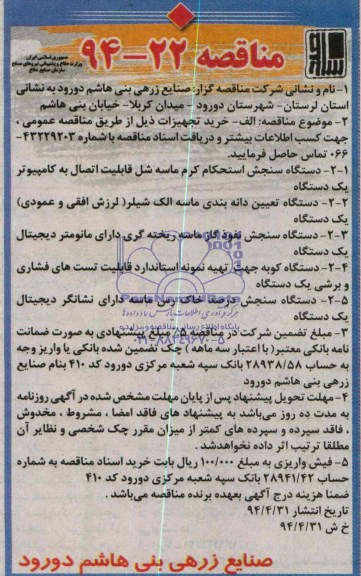 جمهوری اسلامی ایران
وزارت دفاع و پشتیبانی نیروهای مسلح
سازمان صنایع دفاع
مناقصه ۲۲-۹۴
۱- نام و نشانی شرکت مناقصه گزار: صنایع زرهی بنی هاشم دورود به نشانی
استان لرستان- شهرستان دورود - میدان کربلا- خیابان بنی هاشم
۲- موضوع مناقصه: الف- خرید تجهیزات ذیل از طریق مناقصه عمومی ،
جهت کسب اطلاعات بیشتر و دریافت اسناد مناقصه با شماره ۴۳۲۲۹۲۰۳-
۰۶۶ تماس حاصل فرمایید.
۲-۱- دستگاه سنجش استحکام کرم ماسه شل قابلیت اتصال به کامپیوتر
یک دستگاه
۲-۲- دستگاه تعیین دانه بندی ماسه الک شیلر( لرزش افقی و عمودی)
یک دستگاه
۲-۳- دستگاه سنجش نفوذ گاز ماسه ریخته گری دارای مانومتر دیجیتال
یک دستگاه
۲-۴- دستگاه کوبه جهت تهیه نمونه استاندارد قابلیت تست های فشاری
و برشی یک دستگاه
۲-۵- دستگاه سنجش درصد خاک رس ماسه دارای نشانگر دیجیتال
یک دستگاه
۳- مبلغ تضمین شرکت در مناقصه ۵٪ مبلغ پیشنهادی به صورت ضمانت
نامه بانکی معتبر( با اعتبار سه ماهه ) چک تضمین شده بانکی یا واریز وجه
به حساب ۲۸۹۳۸/۵۸ بانک سپه شعبه مرکزی دورود کد ۴۱۰ بنام صنایع
زرهی بنی هاشم دورود
۴- مهلت تحویل پیشنهاد پس از پایان مهلت مشخص شده در آگهی روزنامه
به مدت ده روز می‌باشد به پیشنهاد های فاقد امضا ، مشروط ، مخدوش
، فاقد سپرده و سپرده های کمتر از میزان مقرر چک شخصی و نظایر آن
مطلقا ترتیب اثر داده نخواهدشد .
۵- فیش واریزی به مبلغ ۱۰۰/۰۰۰ ریال بابت خرید اسناد مناقصه به شماره
حساب ۲۸۹۴۱/۴۲ بانک سپه شعبه مرکزی دورود کد ۴۱۰
ضمنا هزینه درج آگهی بعهده برنده مناقصه می‌باشد .
تاریخ انتشار ۹۴/۴/۳۱
خ ش ۹۴/۴/۳۱
صنایع زرهی بنی هاشم دورود